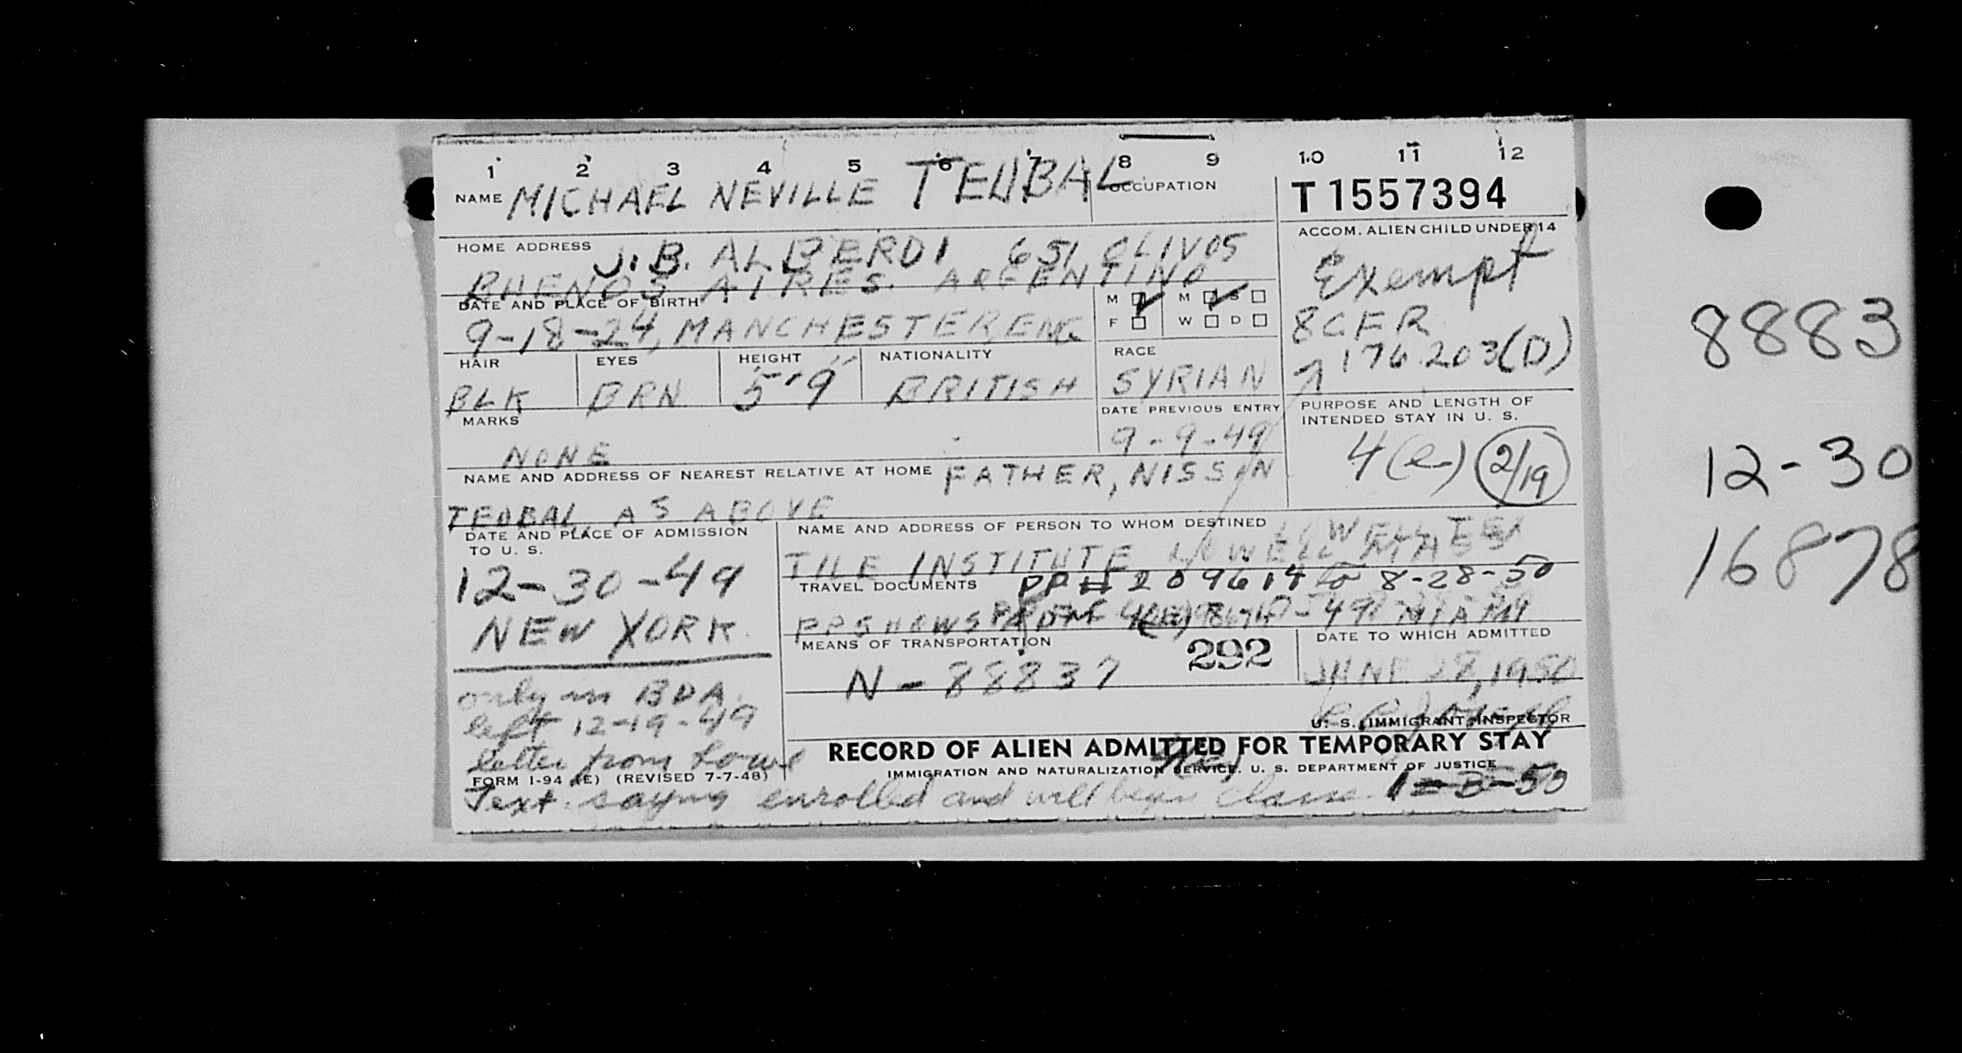 1 2 3 4 5 6 7 8 9 10 11 12
NAME MICHAEL NEVILLE TEUBAL
OCCUPATION
T1557394
HOME ADDRESS J. B. ALBERDI 651 OLIVOS
BUENOS AIRES. ARGENTINO
ACCOM. ALIEN CHILD UNDER 14
Exempt
8CFR
176.203(D)
DATE AND PLACE OF BIRTH
9-18-24, MANCHESTER, ENG
M M S
F W D
HAIR EYES HEIGHT NATIONALITY RACE
BLK BRN 5'9" BRITISH SYRIAN
MARKS
NONE
DATE PREVIOUS ENTRY
9-9-49
PURPOSE AND LENGTH OF
INTENDED STAY IN U. S.
4(e) 2/19
NAME AND ADDRESS OF NEAREST RELATIVE AT HOME FATHER, NISSIN
TEUBAL AS ABOVE
DATE AND PLACE OF ADMISSION
TO U. S.
12-30-49
NEW YORK.
NAME AND ADDRESS OF PERSON TO WHOM DESTINED
LOWELL TEX
TILE INSTITUTE LOWELL MASS
TRAVEL DOCUMENTS PP# 209614 to 8-28-50
PP SHOWS ADM 4(E) 49 MIAMI
MEANS OF TRANSPORTATION 292
N-88837
DATE TO WHICH ADMITTED
JUNE 28, 1950
U. S. IMMIGRANT INSPECTOR
only in BDA
left 12-19-49
letter from Lowell
FORM I-94 (E) (REVISED 7-7-48)
Text. saying enrolled and will begin classes 1-3-50
RECORD OF ALIEN ADMITTED FOR TEMPORARY STAY
IMMIGRATION AND NATURALIZATION SERVICE. U. S. DEPARTMENT OF JUSTICE
8883
12-30
16878